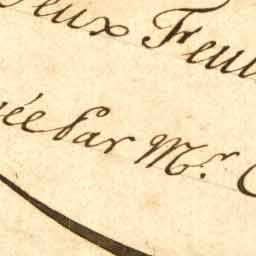 eux Feuil
ée Par Mr. C